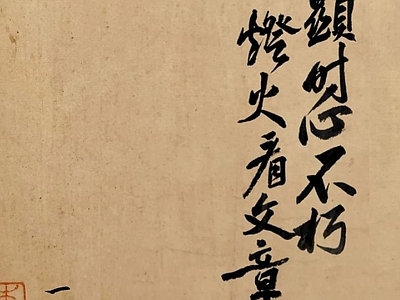 顯时心不朽
燈火看文章
一